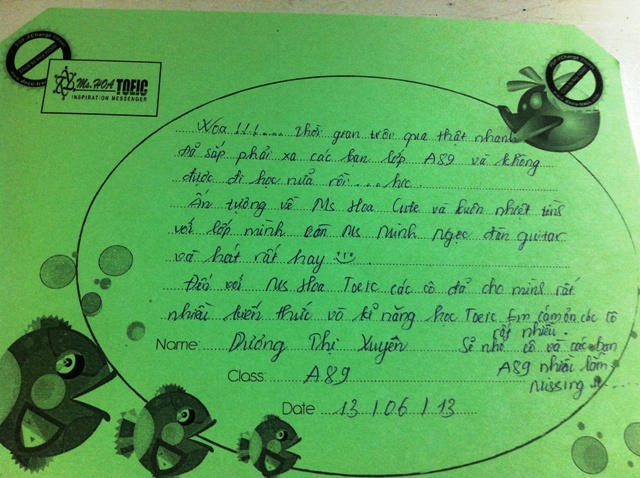 Ms. HOA TOEIC
INSPIRATION MESSENGER
Woa !!!.... thời gian trôi qua thật nhanh
Đã sắp phải xa các bạn lớp A89 và không
được đi học nữa rồi ... hic.
Ấn tượng về Ms Hoa Cute và luôn nhiệt tình
với lớp mình còn Ms Minh Ngọc đàn guitar
và hát rất hay
Đến với Ms Hoa Toeic các cô đã cho mình rất
nhiều kiến thức và kĩ năng học Toeic. Em cảm ơn các cô
rất nhiều.
Name: Dương Thị Xuyên
Sẽ nhớ cô và các bạn
Class: A89
A89 nhiều lắm
Missing !!...
Date 13 / 06 / 13